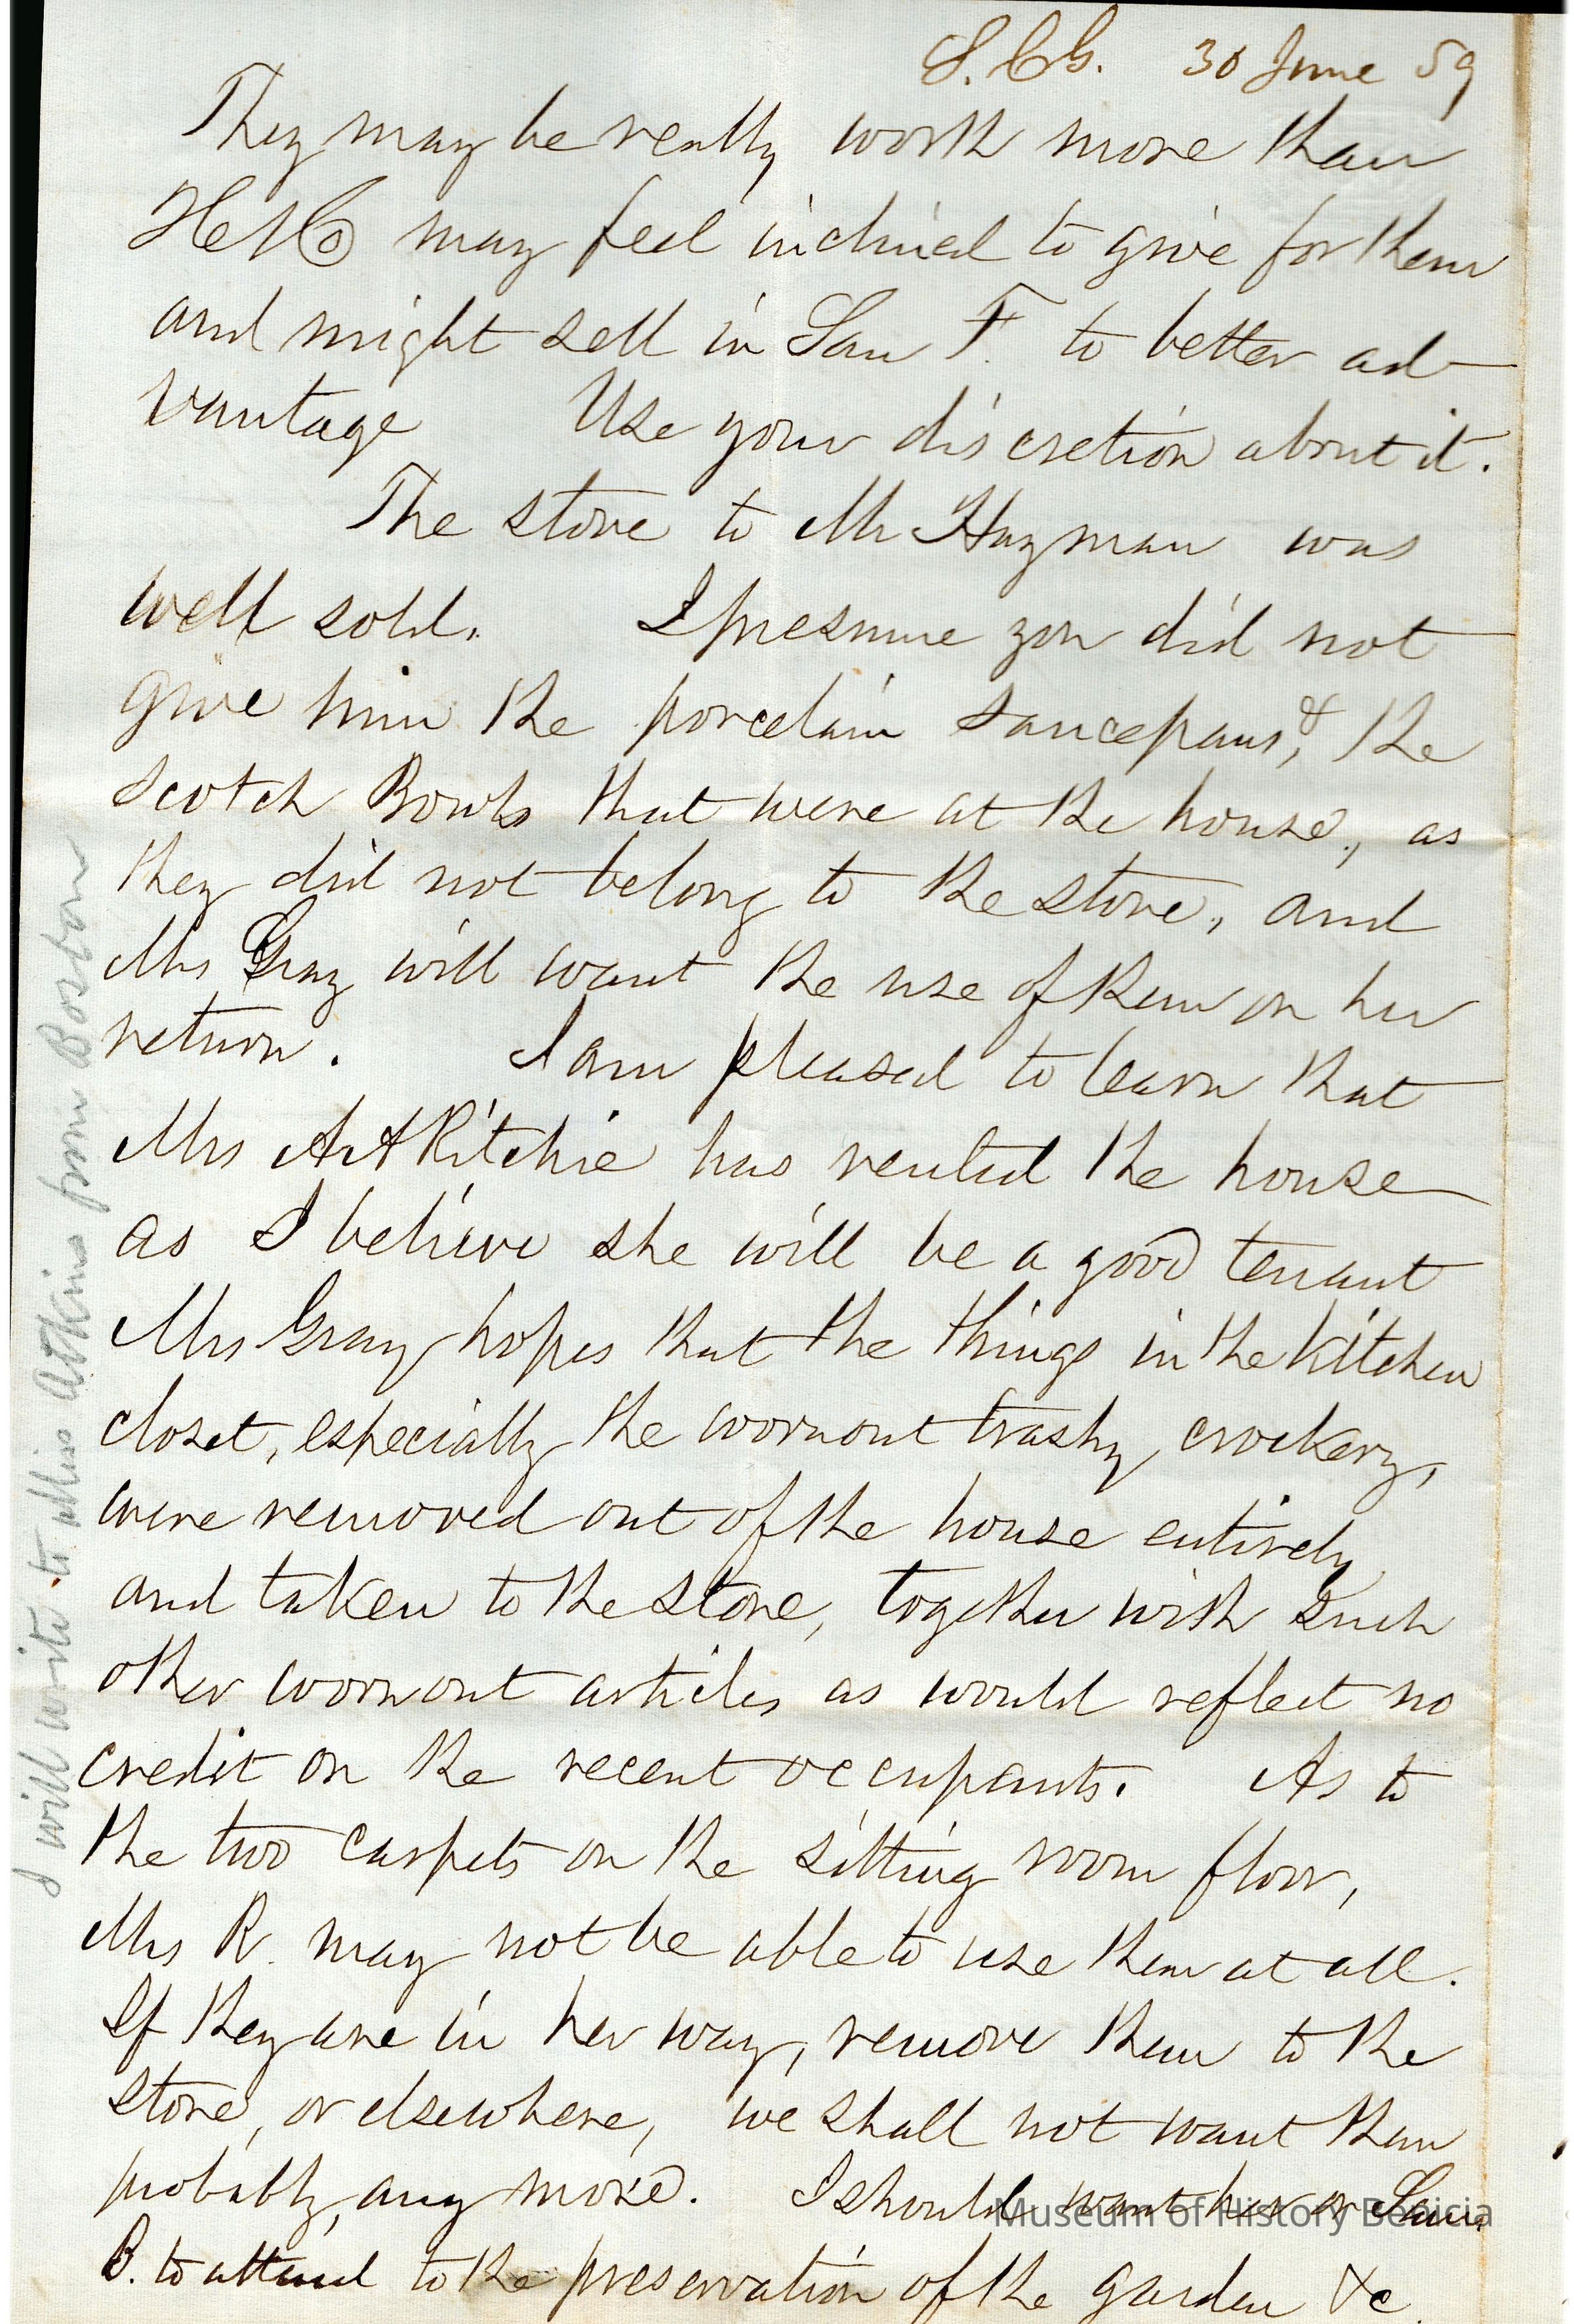 S.C.G. 30 June 59
They may be really worth more than
H & Co may feel inclined to give for them
and might sell in San F. to better ad-
vantage Use your discretion about it.
The stove to Mr Hayman was
well sold. I presume you did not
give him the porcelain saucepans, & the
Scotch Bowls that were at the house, as
they did not belong to the stove, and
Mrs Gray will want the use of them on her
return. I am pleased to learn that
Mrs Ritchie has rented the house
as I believe she will be a good tenant
Mrs Gray hopes that the things in the kitchen
closet, especially the wornout trashy crockery,
were removed out of the house entirely
and taken to the store, together with such
other wornout articles as would reflect no
credit on the recent occupants. As to
the two carpets on the sitting room floor,
Mrs R. may not be able to use them at all.
If they are in her way, remove them to the
store, or elsewhere, we shall not want them
probably, any more. I should want her or Saml
B. to attend to the preservation of the garden &c.
I will write to Miss Atkins from Boston
Museum of History Benicia